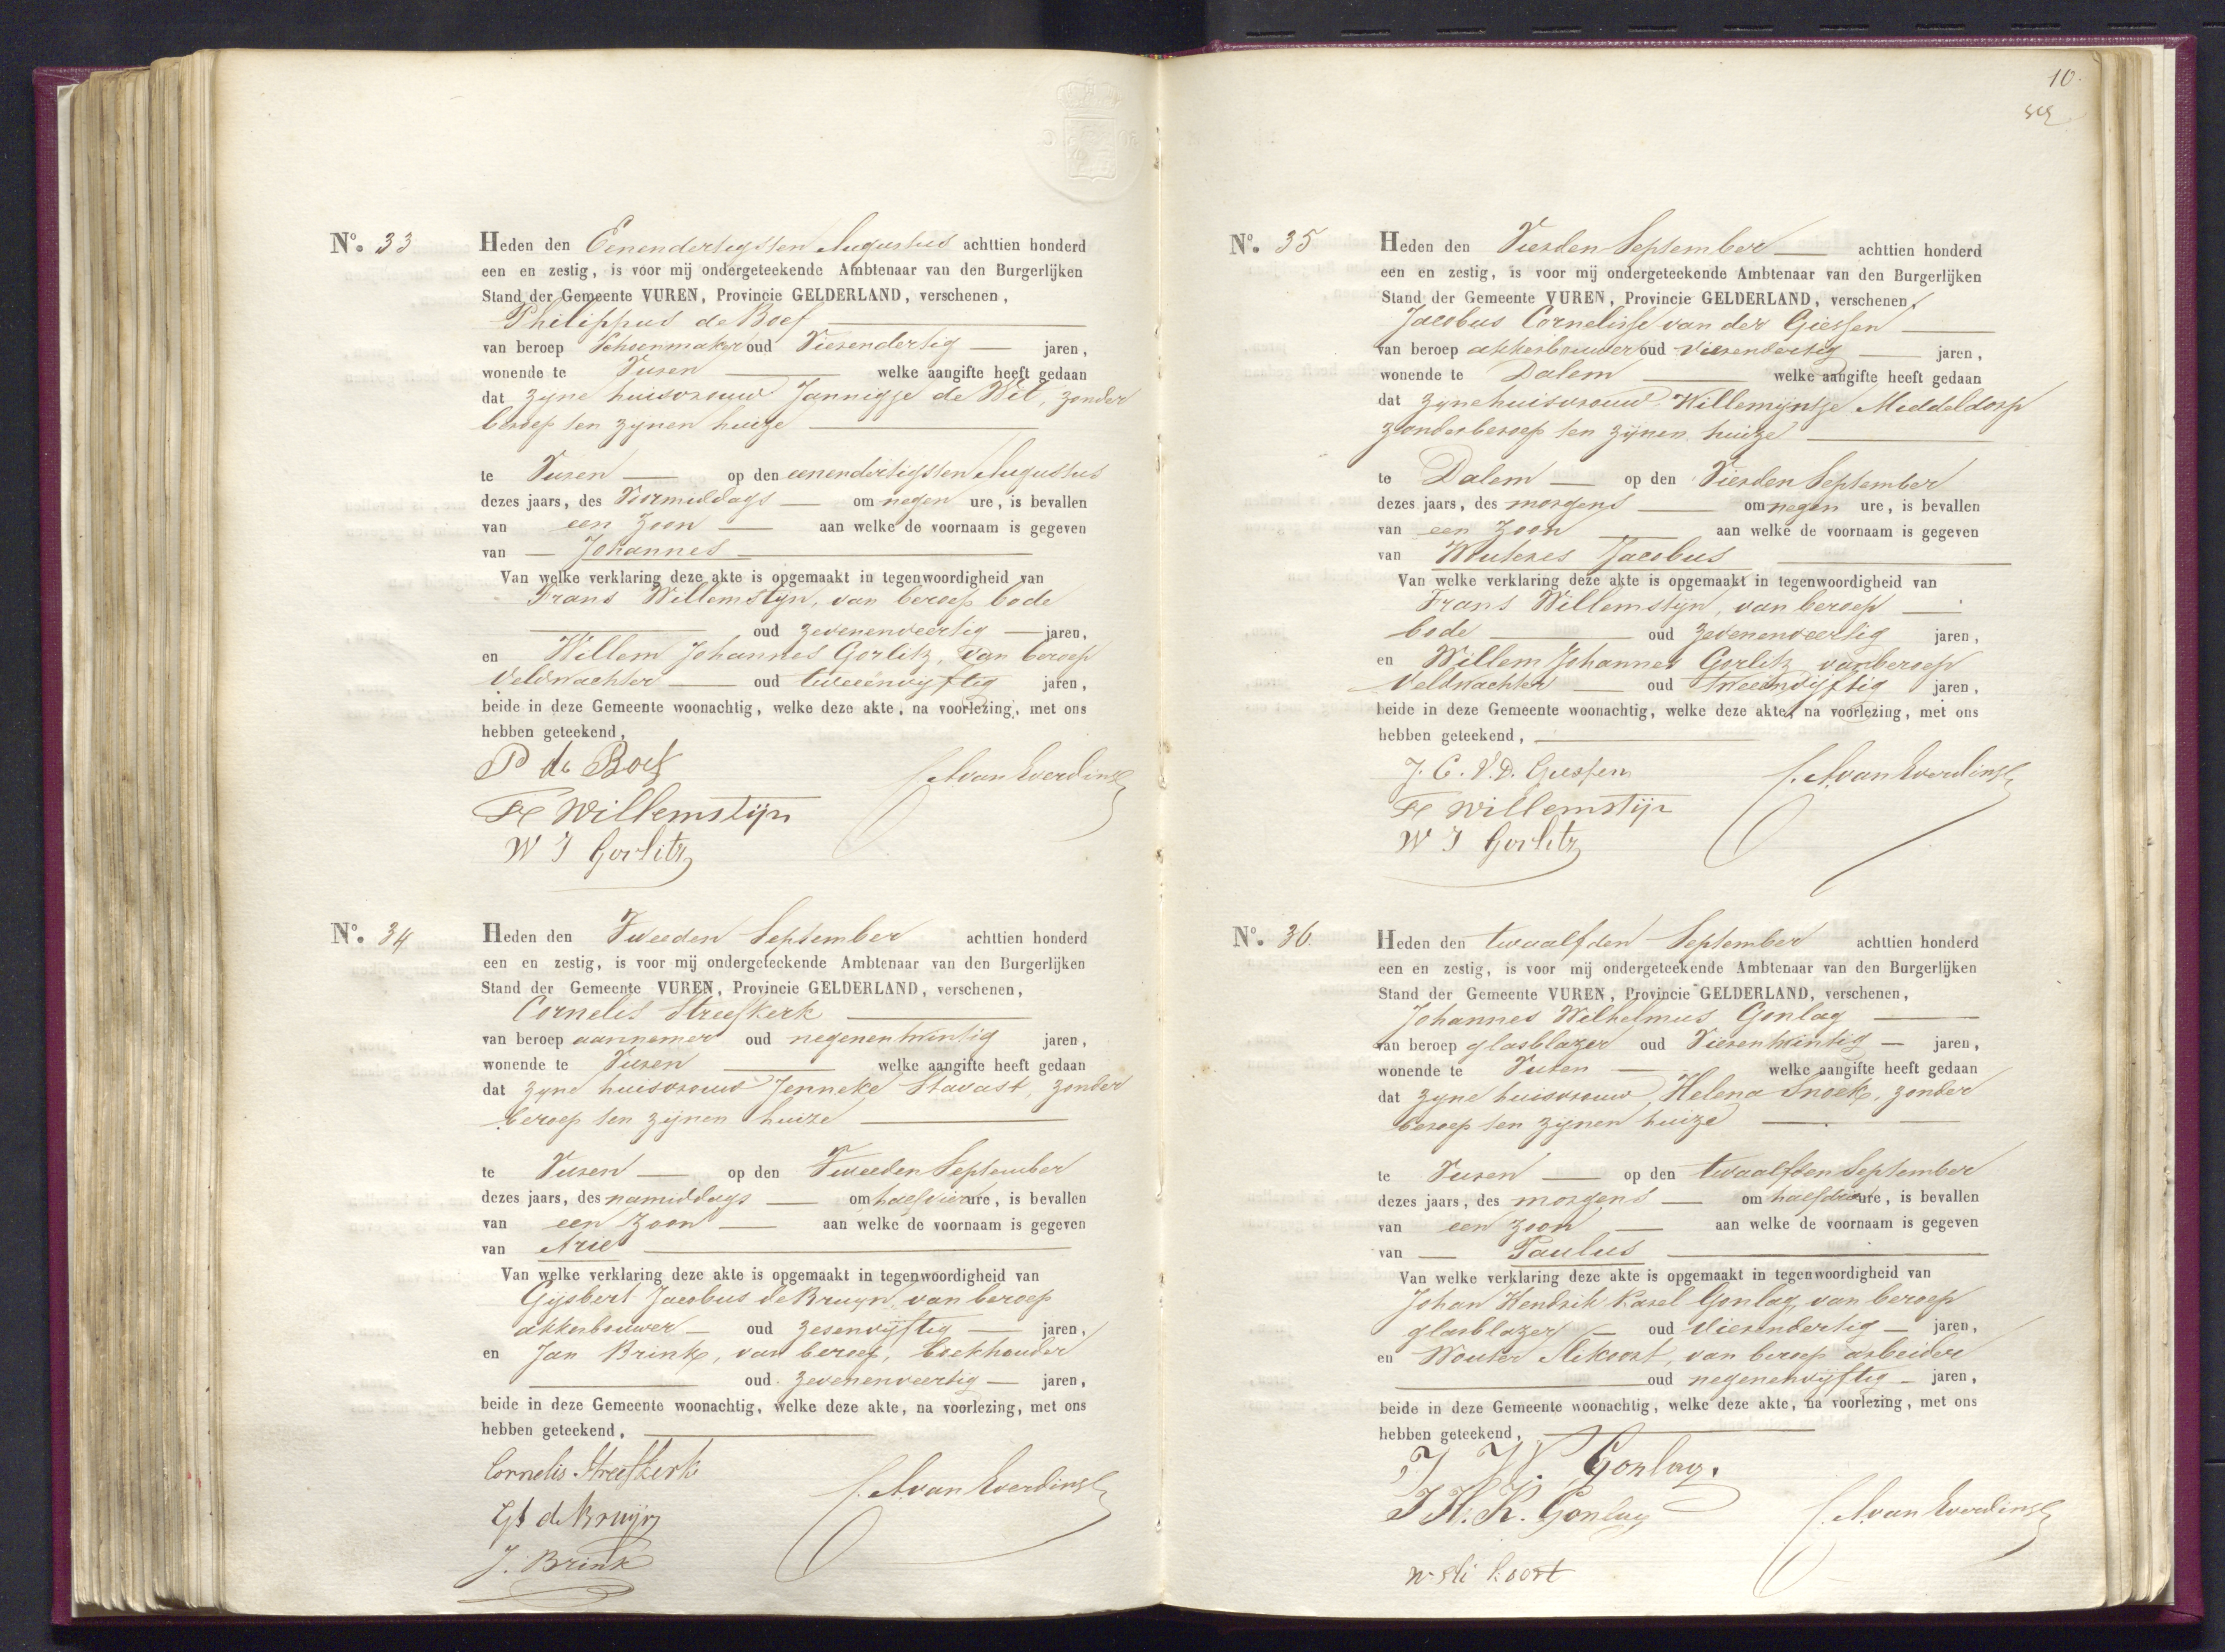 No. 33
Heden den Eenendertigsten Augustus achttien honderd
een en zestig, is voor mij ondergeteekende Ambtenaar van den Burgerlijken
Stand der Gemeente VUREN, Provincie GELDERLAND, verschenen,
Philippus de Boef
van beroep Schoenmaker oud Vierendertig jaren,
wonende te Vuren welke aangifte heeft gedaan
dat zyne huisvrouw Jannigje de Wit, zonder
beroep ten zynen huize
te Vuren op den eenendertigsten Augustus
dezes jaars, des Voormiddags om negen ure, is bevallen
van een Zoon aan welke de voornaam is gegeven
van Johannes
Van welke verklaring deze akte is opgemaakt in tegenwoordigheid van
Frans Willemstyn, van beroep bode
oud zevenenveertig jaren,
en Willem Johannes Gorlitz, van beroep
Veldwachter oud tweeenvyftig jaren,
beide in deze Gemeente woonachtig, welke deze akte, na voorlezing, met ons
hebben geteekend,
P de Boef
Fs Willemstijn
W J Gorlitz
No. 34
Heden den Tweeden September achttien honderd
een en zestig, is voor mij ondergeteekende Ambtenaar van den Burgerlijken
Stand der Gemeente VUREN, Provincie GELDERLAND, verschenen,
Cornelis Streefkerk
van beroep aannemer oud negenentwintig jaren,
wonende te Vuren welke aangifte heeft gedaan
dat zyne huisvrouw Jenneke Stavast, zonder
beroep ten zijnen huize
te Vuren op den Tweeden September
dezes jaars, des namiddags om half vier ure, is bevallen
van een Zoon aan welke de voornaam is gegeven
van Arie
Van welke verklaring deze akte is opgemaakt in tegenwoordigheid van
Gijsbert Jacobus de Bruyn, van beroep
akkerbouwer oud zesenvijftig jaren,
en Jan Brink, van beroep, boekhouder
oud zevenenveertig jaren,
beide in deze Gemeente woonachtig, welke deze akte, na voorlezing, met ons
hebben geteekend,
Cornelis Streefkerk
de Bruijn
J. Brink
10.
No. 35
Heden den Vierden September achttien honderd
een en zestig, is voor mij ondergeteekende Ambtenaar van den Burgerlijken
Stand der Gemeente VUREN, Provincie GELDERLAND, verschenen,
Jacobus Cornelisse van der Giessen
van beroep akkerbouwer oud vierendertig jaren,
wonende te Dalem welke aangifte heeft gedaan
dat zyne huisvrouw Willemijntje Middeldorp
zonder beroep ten zijnen huize
te Dalem op den Vierden September
dezes jaars, des morgens om negen ure, is bevallen
van een Zoon aan welke de voornaam is gegeven
van Wouteres Jacobus
Van welke verklaring deze akte is opgemaakt in tegenwoordigheid van
Frans Willemstijn, van beroep
bode oud zevenenveertig jaren,
en Willem Johannes Gorlitz van beroep
Veldwachter oud tweeenvijftig jaren,
beide in deze Gemeente woonachtig, welke deze akte, na voorlezing, met ons
hebben geteekend,
J. C. V. D. Giessen
Fs Willemstijn
W J Gorlitz
No. 36.
Heden den twaalfden September achttien honderd
een en zestig, is voor mij ondergeteekende Ambtenaar van den Burgerlijken
Stand der Gemeente VUREN, Provincie GELDERLAND, verschenen,
Johannes Wilhelmus Gonlag
van beroep glasblazer oud Vierentwintig jaren,
wonende te Vuren welke aangifte heeft gedaan
dat zyne huisvrouw, Helena Snoek, zonder
beroep ten zijnen huize
te Vuren op den twaalfden September
dezes jaars, des morgens om half drie ure, is bevallen
van een zoon aan welke de voornaam is gegeven
van Paulus
Van welke verklaring deze akte is opgemaakt in tegenwoordigheid van
Johan Hendrik Karel Gonlag, van beroep
glasblazer oud Vierendertig jaren,
en Wouter Slikoort, van beroep arbeider
oud negenenvijftig jaren,
beide in deze Gemeente woonachtig, welke deze akte, na voorlezing, met ons
hebben geteekend,
J W. Gonlag.
J H. K. Gonlag
W Sli koort